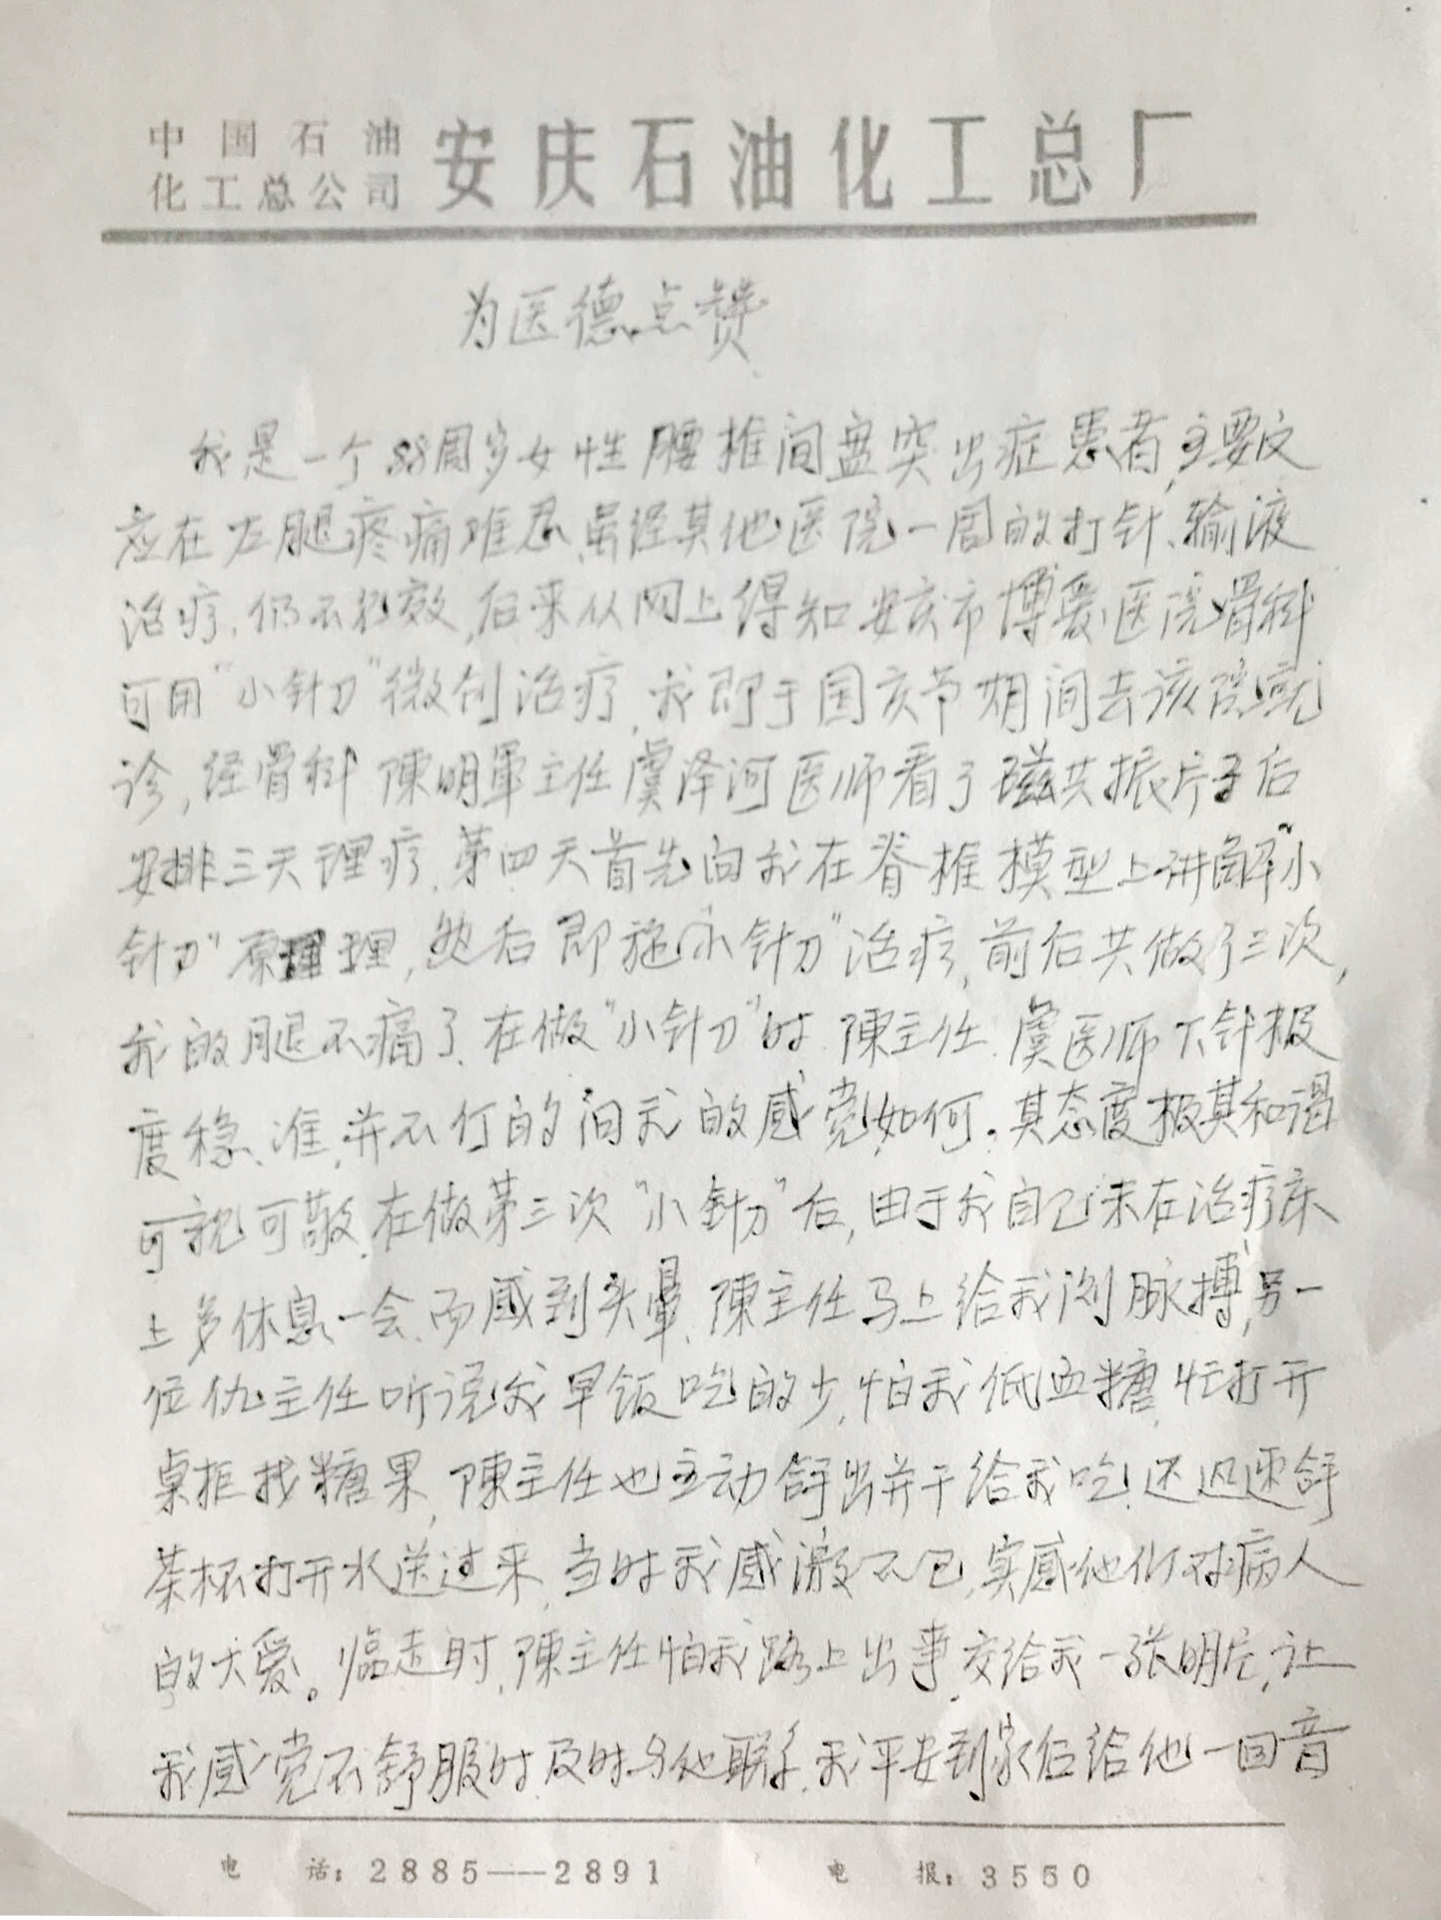 中国石油
化工总公司 安庆石油化工总厂
为医德点赞
我是一个88周岁女性腰椎间盘突出症患者,主要反
应在左腿疼痛难忍.虽经其他医院一周的打针、输液
治疗.仍不见效,后来从网上得知安庆市博爱医院骨科
可用“小针刀”微创治疗,我即于国庆节期间去该院就
诊,经骨科陳明軍主任虞泽河医师看了磁共振片子后
安排三天理疗.第四天首先向我在脊椎模型上讲解“小
针刀”原理,然后即施“小针刀”治疗,前后共做了三次,
我的腿不痛了.在做“小针刀”时.陳主任.虞医师下针极
度稳、准,并不停的问我的感觉如何.其态度极其和谒
可亲可敬.在做第三次“小针刀”后,由于我自己未在治疗床
上多休息一会.而感到头暈.陳主任马上给我测脉搏,另一
位仇主任听说我早饭吃的少,怕我低血糖,忙打开
桌柜找糖果,陳主任也主动拿出并干给我吃!还迅速拿
茶杯打开水送过来,当时我感激不已,实感他们对病人
的大爱。临走时,陳主任怕我路上出事,交给我一张明片,让
我感觉不舒服时及时与他联系.我平安到家后给他一回音
电 话:2885——2891 电 报:3550